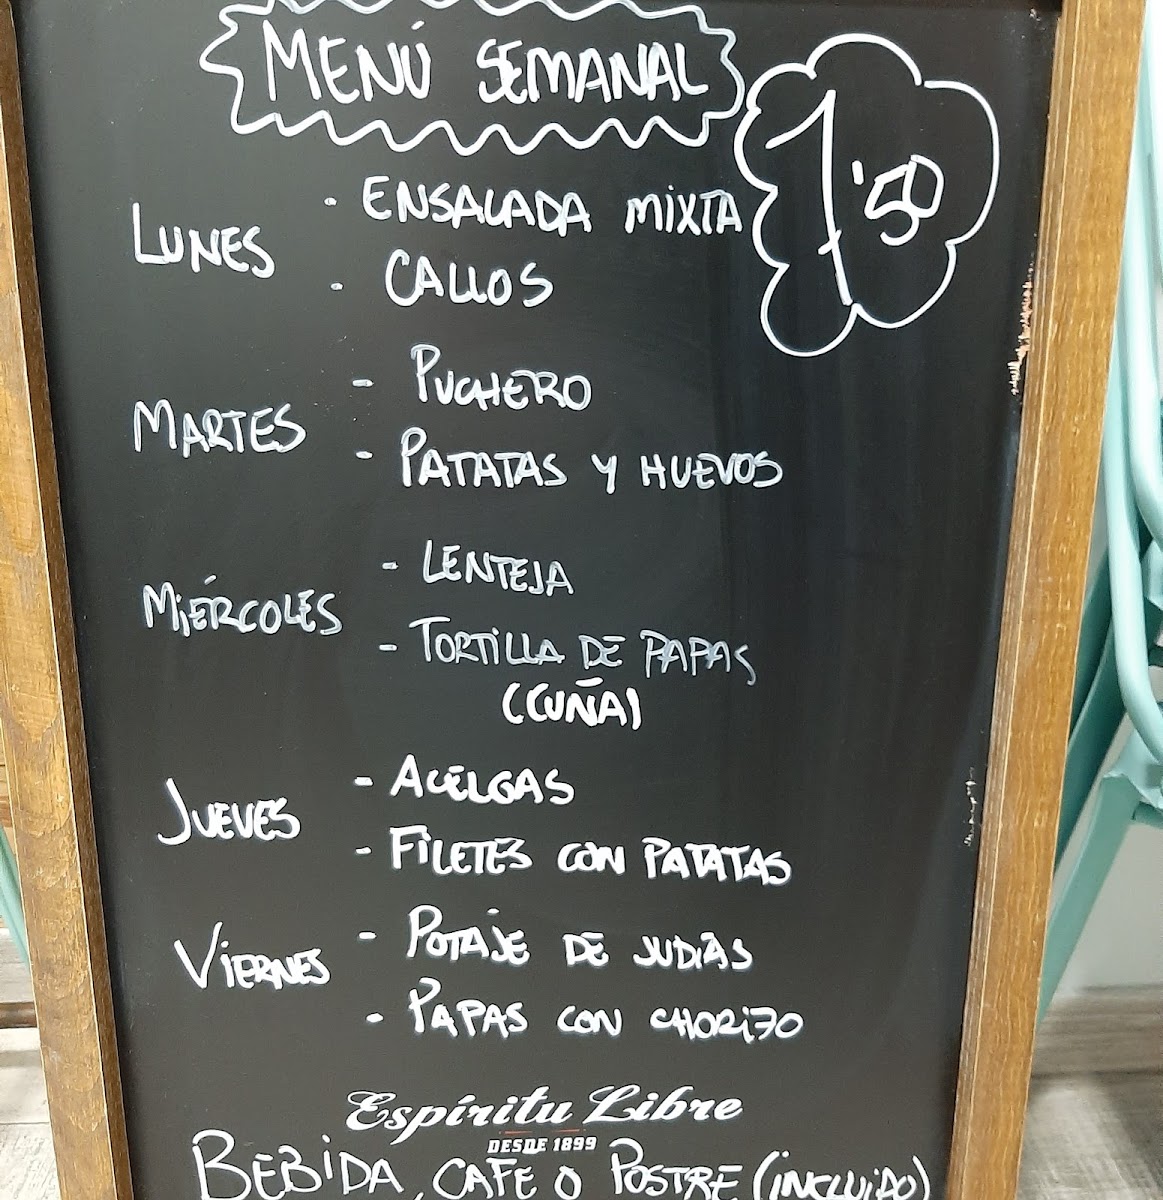 MENÚ SEMANAL
1'50
LUNES
- ENSALADA MIXTA
- CALLOS
MARTES
- PUCHERO
- PATATAS Y HUEVOS
MIÉRCOLES
- LENTEJA
- TORTILLA DE PAPAS
(CUÑA)
JUEVES
- ACELGAS
- FILETES CON PATATAS
VIERNES
- POTAJE DE JUDIAS
- PAPAS CON CHORIZO
Espíritu Libre
DESDE 1899
BEBIDA, CAFE O POSTRE (INCLUIDO)